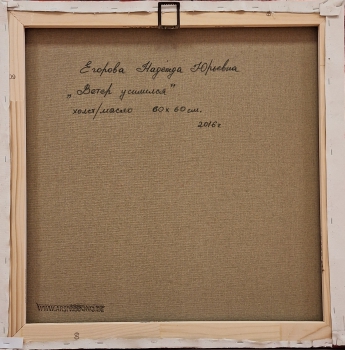 Егорова Надежда Юрьевна
„Ветер усилился"
холст/масло 60 х 60 см.
2016 г